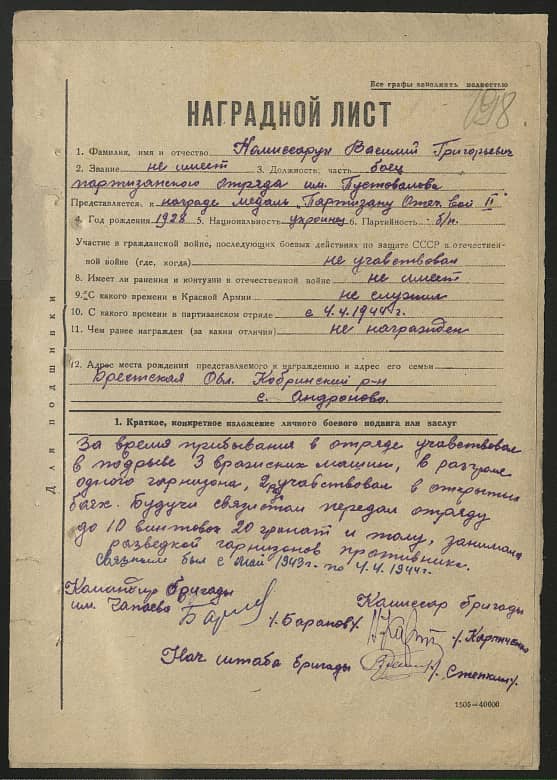 Все графы заполнять полностью
198
НАГРАДНОЙ ЛИСТ
1. Фамилия, имя и отчество Комиссарук Василий Григорьевич
2. Звание не имеет 3. Должность, часть боец
партизанского отряда им. Пустовалова
Представляется к награде медаль „Партизану Отеч. вой II"
4. Год рождения 1928 5. Национальность украинец 6. Партийность б/п.
Участие в гражданской войне, последующих боевых действиях по защите СССР и отечествен-
ной войне (где, когда) не учавствовал
8. Имеет ли ранения и контузии в отечественной войне не имеет
9. С какого времени в Красной Армии не служил
10. С какого времени в партизанском отряде с 4.4.1944 г.
11. Чем ранее награжден (за какие отличия) не награжден
12. Адрес места рождения представляемого к награждению и адрес его семьи
Брестская Обл. Кобринский р-н
с. Андроново.
Для подшивки
1. Краткое, конкретное изложение личного боевого подвига или заслуг
За время прибывания в отряде учавствовал
в подрыве 3 вражиских машин, в разгроме
одного гарнизона, 2 учавствовал в открытых
боях. Будучи связистом передал отряду
до 10 винтовок 20 гранат и толу, занимался
разведкой гарнизонов противника.
Связным был с Мая 1943г. по 4.4.1944г.
Командир бригады
им. Чапаева /Баранов/
Комиссар бригады
/Картченко
Нач штаба бригады /Степкин/.
1505—40000